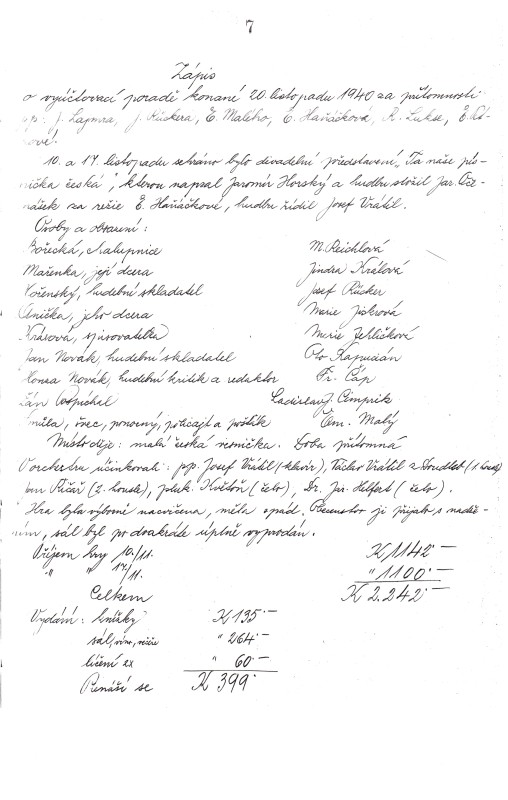 7
Zápis
o vyúčtovací poradě konané 20. listopadu 1940 za přítomnosti
pp: J. Lajmra, J. Rückera, E. Malého, E. Haňáčková, R. Lukse, E.
10. a 17. listopadu sehráno bylo divadelní představení „Ta naše pís-
nička česká", kterou napsal Jaromír Horský a hudbu složil Jar. Oče-
nášek za režie E. Haňáčkové, hudbu řídil Josef Vrátil.
Osoby a obsazení:
Bořecká, chalupnice M. Reichlová
Mařenka, její dcera Jindra Králová
Kořenský, hudební skladatel Josef Rücker
Anička, jeho dcera Marie Jiskrová
Krásová, spisovatelka Marie Jehličková
Jan Novák, hudební skladatel Oto Kapucián
Honza Novák, hudební kritik a redaktor Fr. Čáp
Pán Pospíchal Ladislav J. Cimprik
Šmůla, obec, ponocný, policajt a pošťák Em. Malý
Místo děje: malá česká vesnička. Doba přítomná
V orchestru účinkovali: pp. Josef Vrátil (klavír), Václav Vrátil z Doudleb (1 housle)
(2. housle), pluk. Květoň (čelo), Dr. Jar. Helfert (čelo).
Hra byla výborně nacvičena, měla spád. Obecenstvo ji přijalo s nadše-
ním, sál byl po dvakráte úplně vyprodán.
Příjem hry 10./11. K 1142·—
-"- " 17./11. " 1100·—
Celkem K 2.242·—
Vydání: knížky K 135·—
sál, víno, režie " 264·—
líčení 2x " 60·—
Přenáší se K 399·